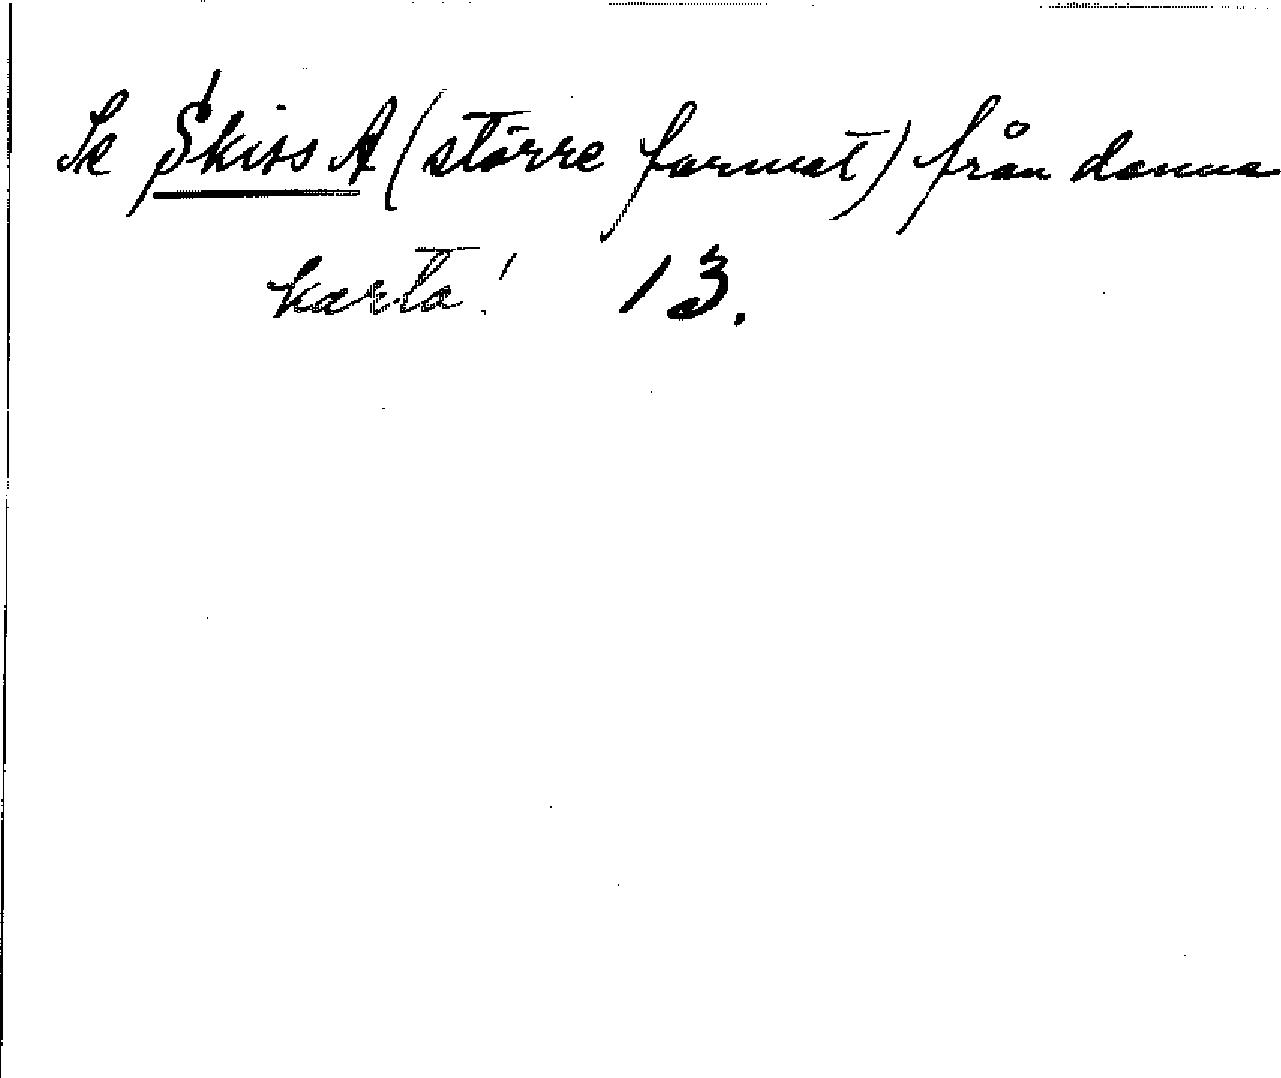 Se Skiss A (större format) från denna
karta! 13.